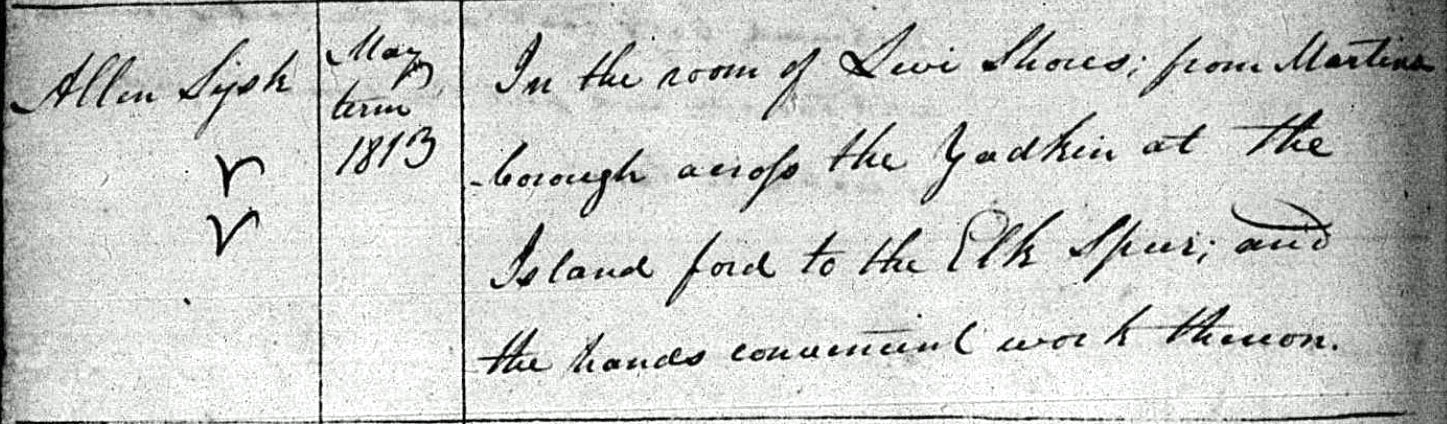 Allen Sysk
May
term
1813
In the room of Levi Shores; from Martins
-borough across the Yadkin at the
Island ford to the Elk Spur; and
the hands convenient work thereon.